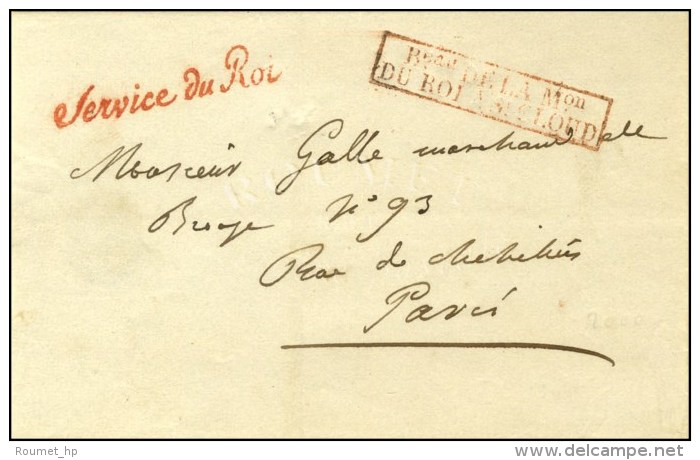 Service du Roi
Bᵉᵃᵘ DE LA Mᵒⁿ
DU ROI A Sᵗ CLOUD
Monsieur Galle marchand de
Bronze N° 93
Rue de
Paris
2000
ROUMET
Roumet_hp
delcampe.net